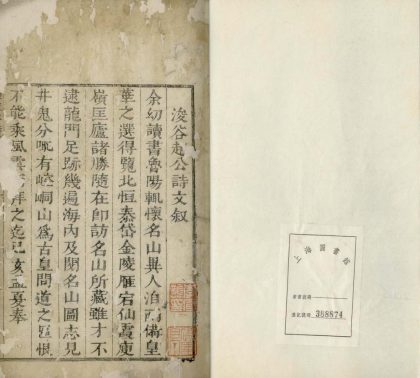 浚谷趙公詩文叙
余幼讀書魯陽輒懷名山異人洎西備皇
華之選得覽北恒泰岱金陵雁宕仙霞庾
嶺匡廬諸勝隨在即訪名山所藏雖才不
逮龍門足跡幾遍海內及閱名山圖志見
井鬼分野有崆峒山為古皇問道之區恨
不能乘風雲 之迄己亥孟夏奉
圖書館
388874